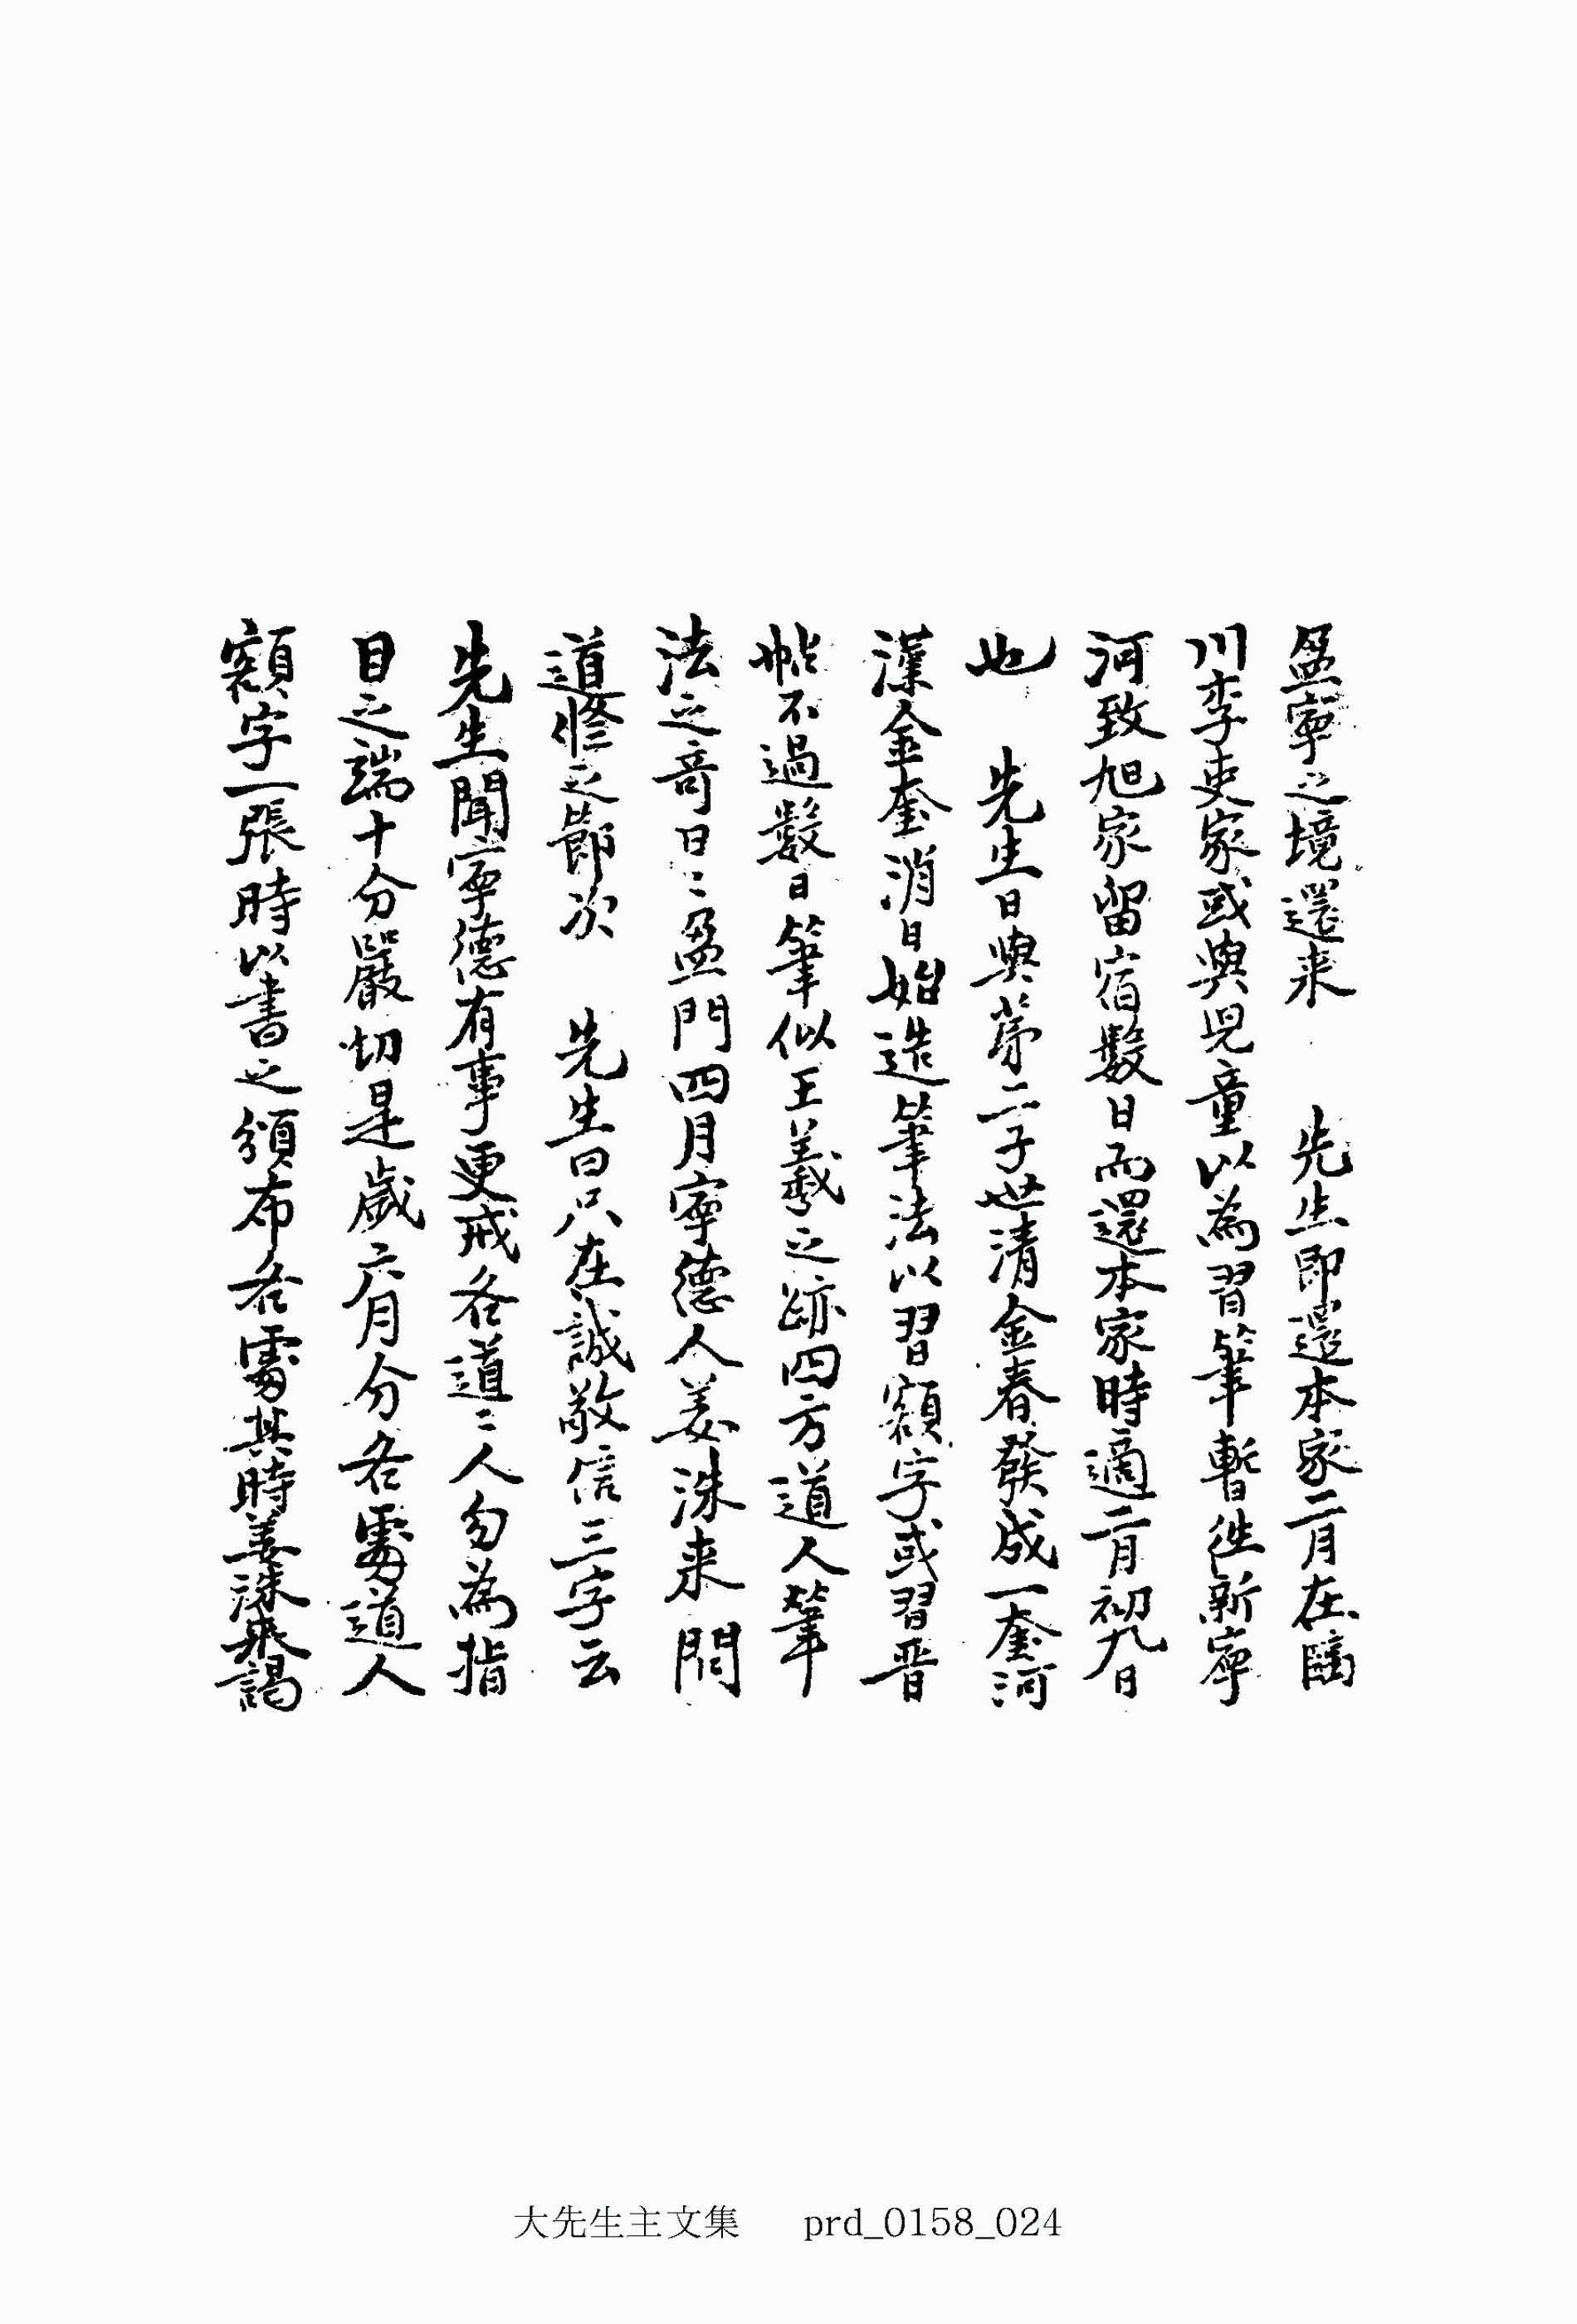 盈寧之境還来　先生即還本家二月在臨
川李吏家或與児童以為習筆暫徃新寧
河致旭家留宿數日而還本家時適二月初九日
也　先生日與苐二子世清金春發成一奎河
漢金奎消日始造筆法以習額字或習晋
帖不過數日筆似王羲之跡四方道人筆
法之竒日〻盈門四月寧德人姜洙来問
道修之節次　先生曰只在誠敬信三字云
先生聞寧德有事更戒各道〻人勿為指
目之端十分嚴切是歲六月分各處道人
額字一張時以書之頒布各處其時姜洙来謁
大先生主文集　prd_0158_024